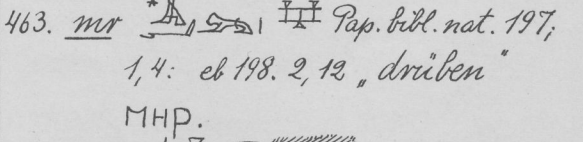 463. mr Pap. bibl. nat. 197,
1, 4: eb 198. 2, 12 „drüben“
ⲙⲏⲣ.